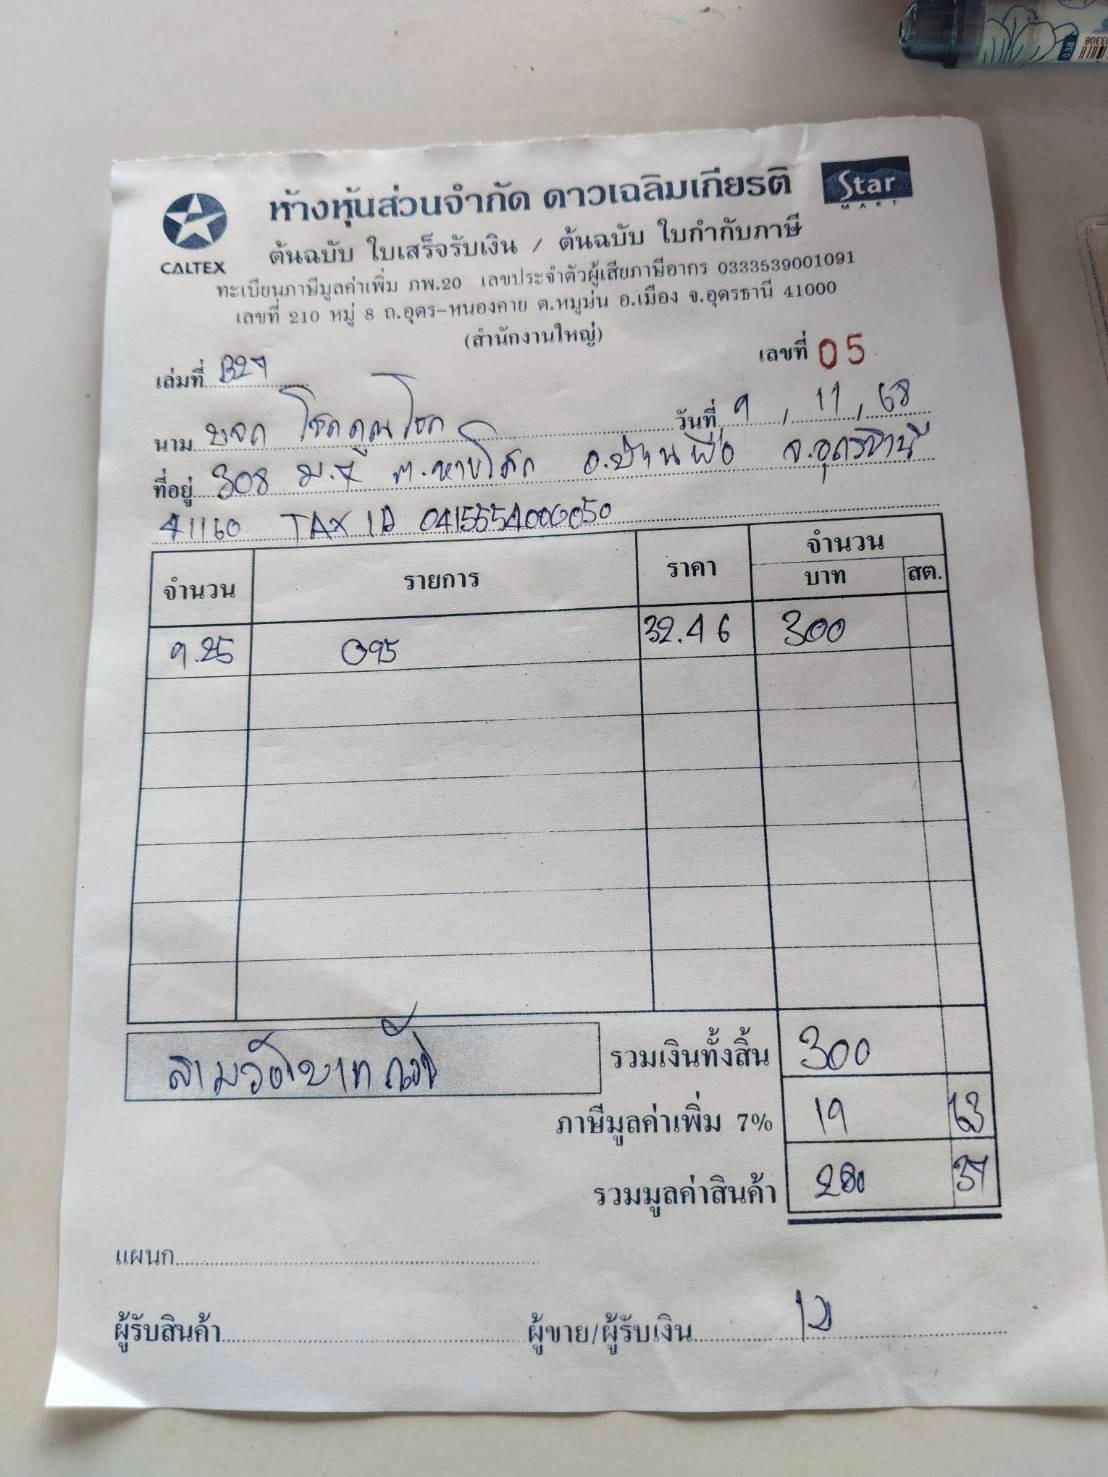 ห้างหุ้นส่วนจำกัด ดาวเฉลิมเกียรติ
Star
MART
CALTEX
ต้นฉบับ ใบเสร็จรับเงิน / ต้นฉบับ ใบกำกับภาษี
ทะเบียนภาษีมูลค่าเพิ่ม ภพ.20 เลขประจำตัวผู้เสียภาษีอากร 0333539001091
เลขที่ 210 หมู่ 8 ถ.อุดร-หนองคาย ต.หมูม่น อ.เมือง จ.อุดรธานี 41000
(สำนักงานใหญ่)
เล่มที่ B27 เลขที่ 05
นาม บจก โชคคูณโชค วันที่ 9 , 11 , 68
ที่อยู่ 308 ม.7 ต.หายโศก อ.บ้านผือ จ.อุดรธานี
41160 TAX ID 0415554000050
จำนวน รายการ ราคา จำนวน
บาท สต.
9.25 G95 32.46 300
สามร้อยบาทถ้วน รวมเงินทั้งสิ้น 300
ภาษีมูลค่าเพิ่ม 7% 19 63
รวมมูลค่าสินค้า 280 37
แผนก
ผู้รับสินค้า ผู้ขาย/ผู้รับเงิน